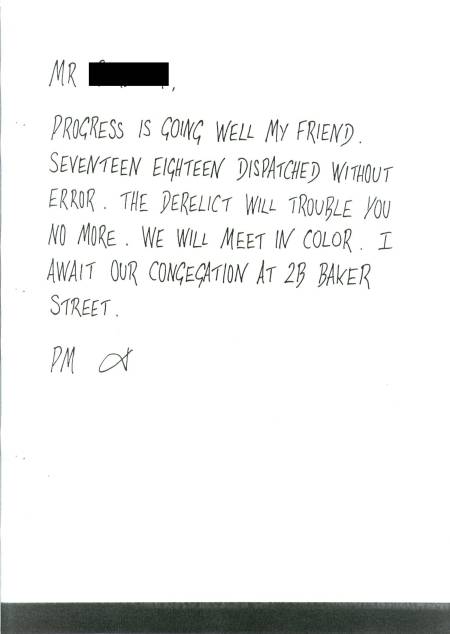 MR
PROGRESS IS GOING WELL MY FRIEND.
SEVENTEEN EIGHTEEN DISPATCHED WITHOUT
ERROR. THE DERELICT WILL TROUBLE YOU
NO MORE. WE WILL MEET IN COLOR. I
AWAIT OUR CONGEGATION AT 2B BAKER
STREET.
PM